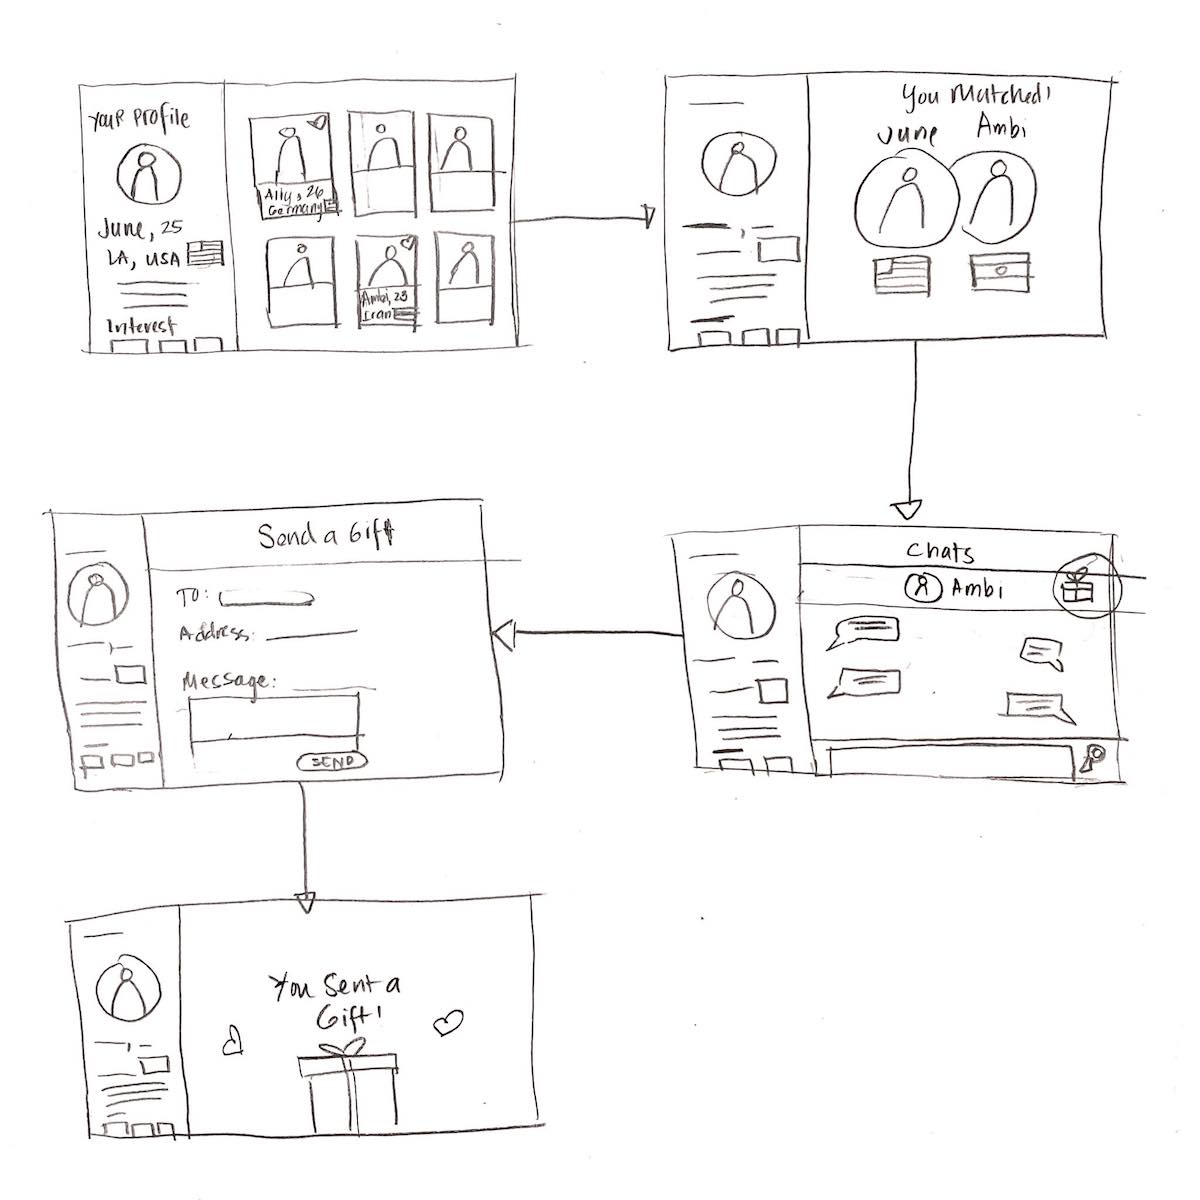 Your Profile
June, 25
LA, USA
Interest
Ally, 26
Germany
Ambi, 23
Iran
You Matched!
June
Ambi
Chats
Ambi
Send a Gift
To:
Address:
Message:
SEND
You Sent a
Gift!